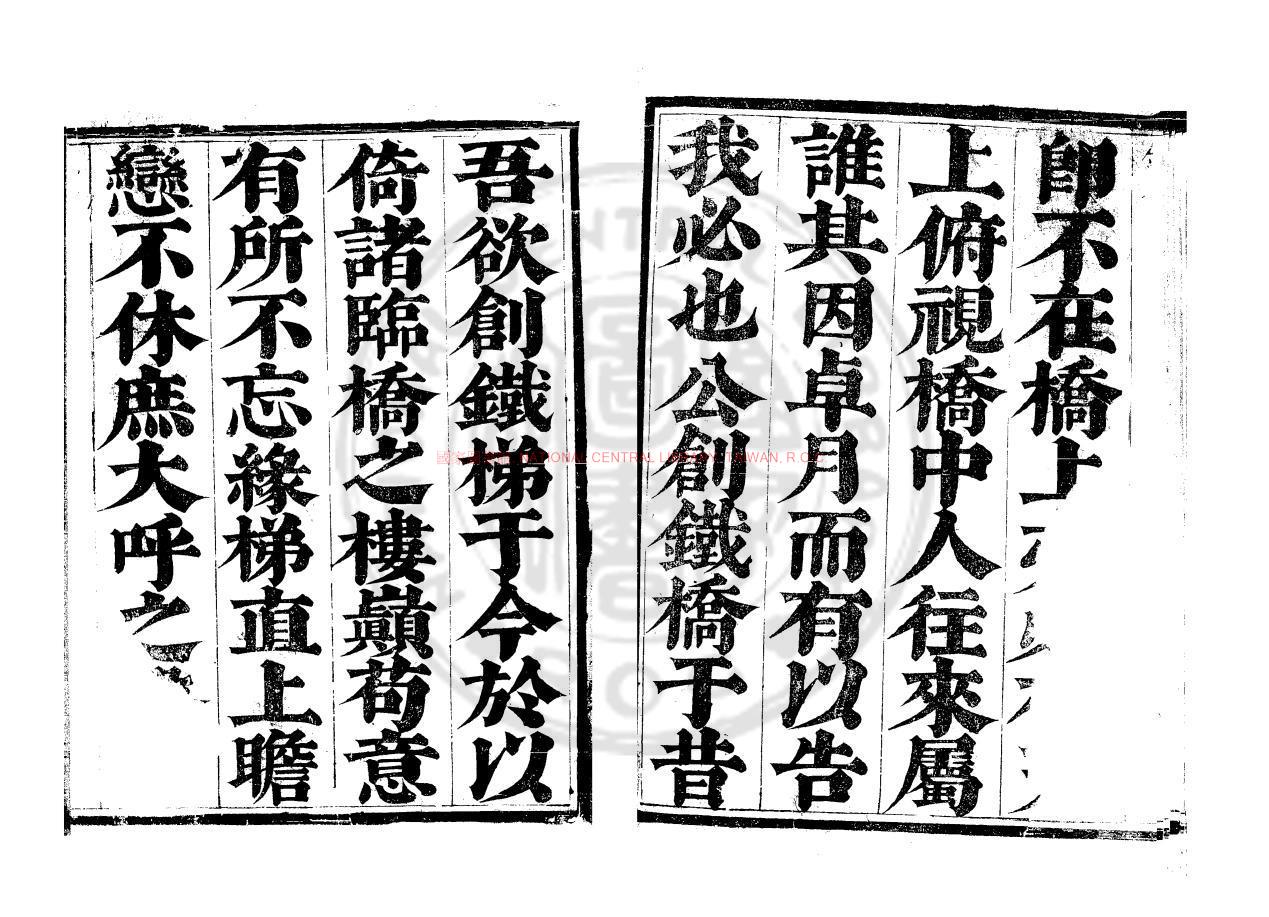 即不在橋上
上俯視橋中人往來屬
誰其因卓月而有以告
我必也公創鐵橋于昔
吾欲創鐵梯于今於以
倚諸臨橋之樓巔苟意
有所不忘緣梯直上瞻
戀不休庶大呼之
國家圖書館 NATIONAL CENTRAL LIBRARY, TAIWAN, R.O.C